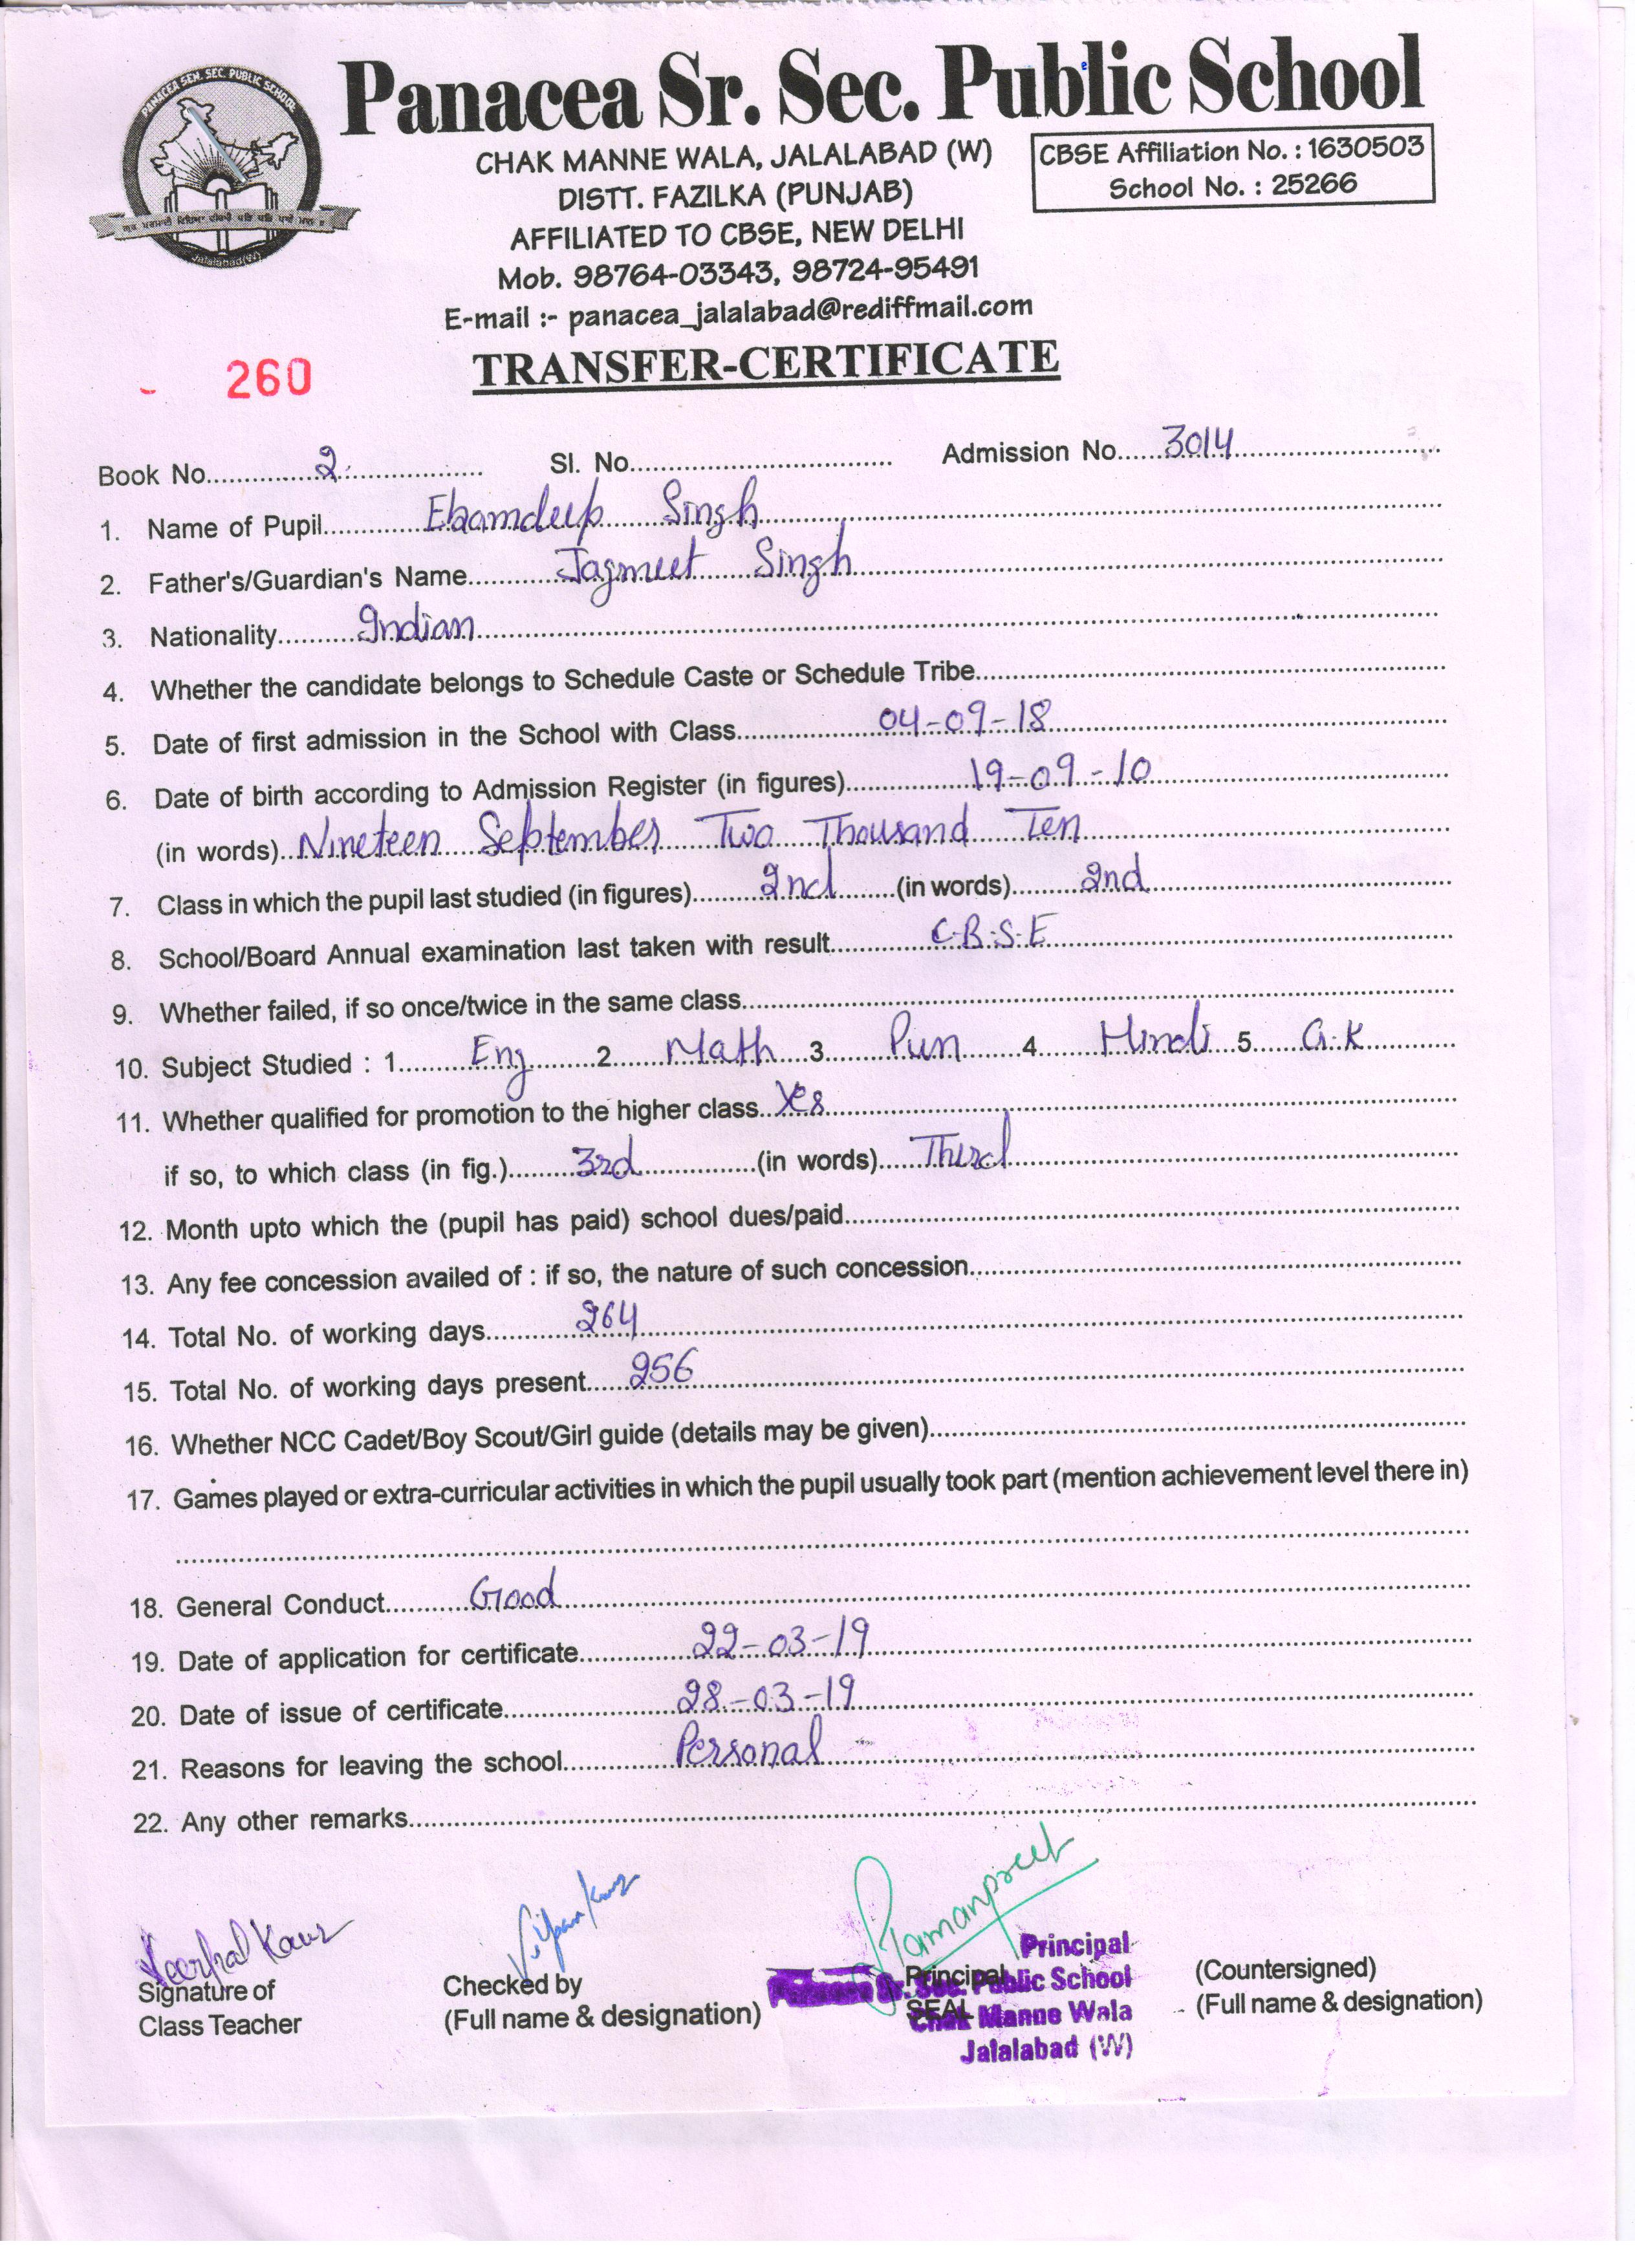 PANACEA SEN. SEC. PUBLIC SCHOOL
Jalalabad(W)
Panacea Sr. Sec. Public School
CHAK MANNE WALA, JALALABAD (W)
CBSE Affiliation No. : 1630503
School No. : 25266
DISTT. FAZILKA (PUNJAB)
AFFILIATED TO CBSE, NEW DELHI
Mob. 98764-03343, 98724-95491
E-mail :- panacea_jalalabad@rediffmail.com
260
TRANSFER-CERTIFICATE
Book No. 2 Sl. No. Admission No. 3014
1. Name of Pupil Ekamdeep Singh
2. Father's/Guardian's Name Jagmeet Singh
3. Nationality Indian
4. Whether the candidate belongs to Schedule Caste or Schedule Tribe
5. Date of first admission in the School with Class 04-09-18
6. Date of birth according to Admission Register (in figures) 19-09-10
(in words) Nineteen September Two Thousand Ten
7. Class in which the pupil last studied (in figures) 2nd (in words) 2nd
8. School/Board Annual examination last taken with result C.B.S.E
9. Whether failed, if so once/twice in the same class
10. Subject Studied : 1. Eng 2. Math 3. Pun 4. Hindi 5. G.K
11. Whether qualified for promotion to the higher class Yes
if so, to which class (in fig.) 3rd (in words) Third
12. Month upto which the (pupil has paid) school dues/paid
13. Any fee concession availed of : if so, the nature of such concession
14. Total No. of working days 264
15. Total No. of working days present 256
16. Whether NCC Cadet/Boy Scout/Girl guide (details may be given)
17. Games played or extra-curricular activities in which the pupil usually took part (mention achievement level there in)
18. General Conduct Good
19. Date of application for certificate 22-03-19
20. Date of issue of certificate 28-03-19
21. Reasons for leaving the school Personal
22. Any other remarks
Kaur
Signature of
Class Teacher
Checked by
(Full name & designation)
Ramanpreet
Principal
SEAL
Principal
Panacea Sr. Sec. Public School
Chak Manne Wala
Jalalabad (W)
(Countersigned)
(Full name & designation)